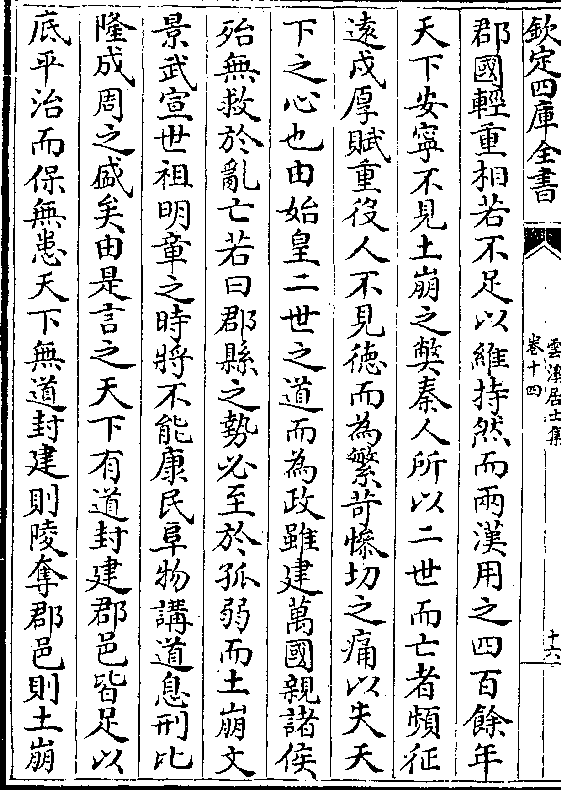 欽定四庫全書
雲溪居士集
卷十四
十六
郡國輕重相若不足以維持然而兩漢用之四百餘年
天下安寧不見土崩之獘秦人所以二世而亡者頻征
遠戍厚賦重役人不見徳而為繁苛慘切之痛以失天
下之心也由始皇二世之道而為政雖建萬國親諸侯
殆無救於亂亡若曰郡縣之勢必至於孤弱而土崩文
景武宣世祖明章之時將不能康民阜物講道息刑比
隆成周之盛矣由是言之天下有道封建郡邑皆足以
底平治而保無患天下無道封建則陵奪郡邑則土崩